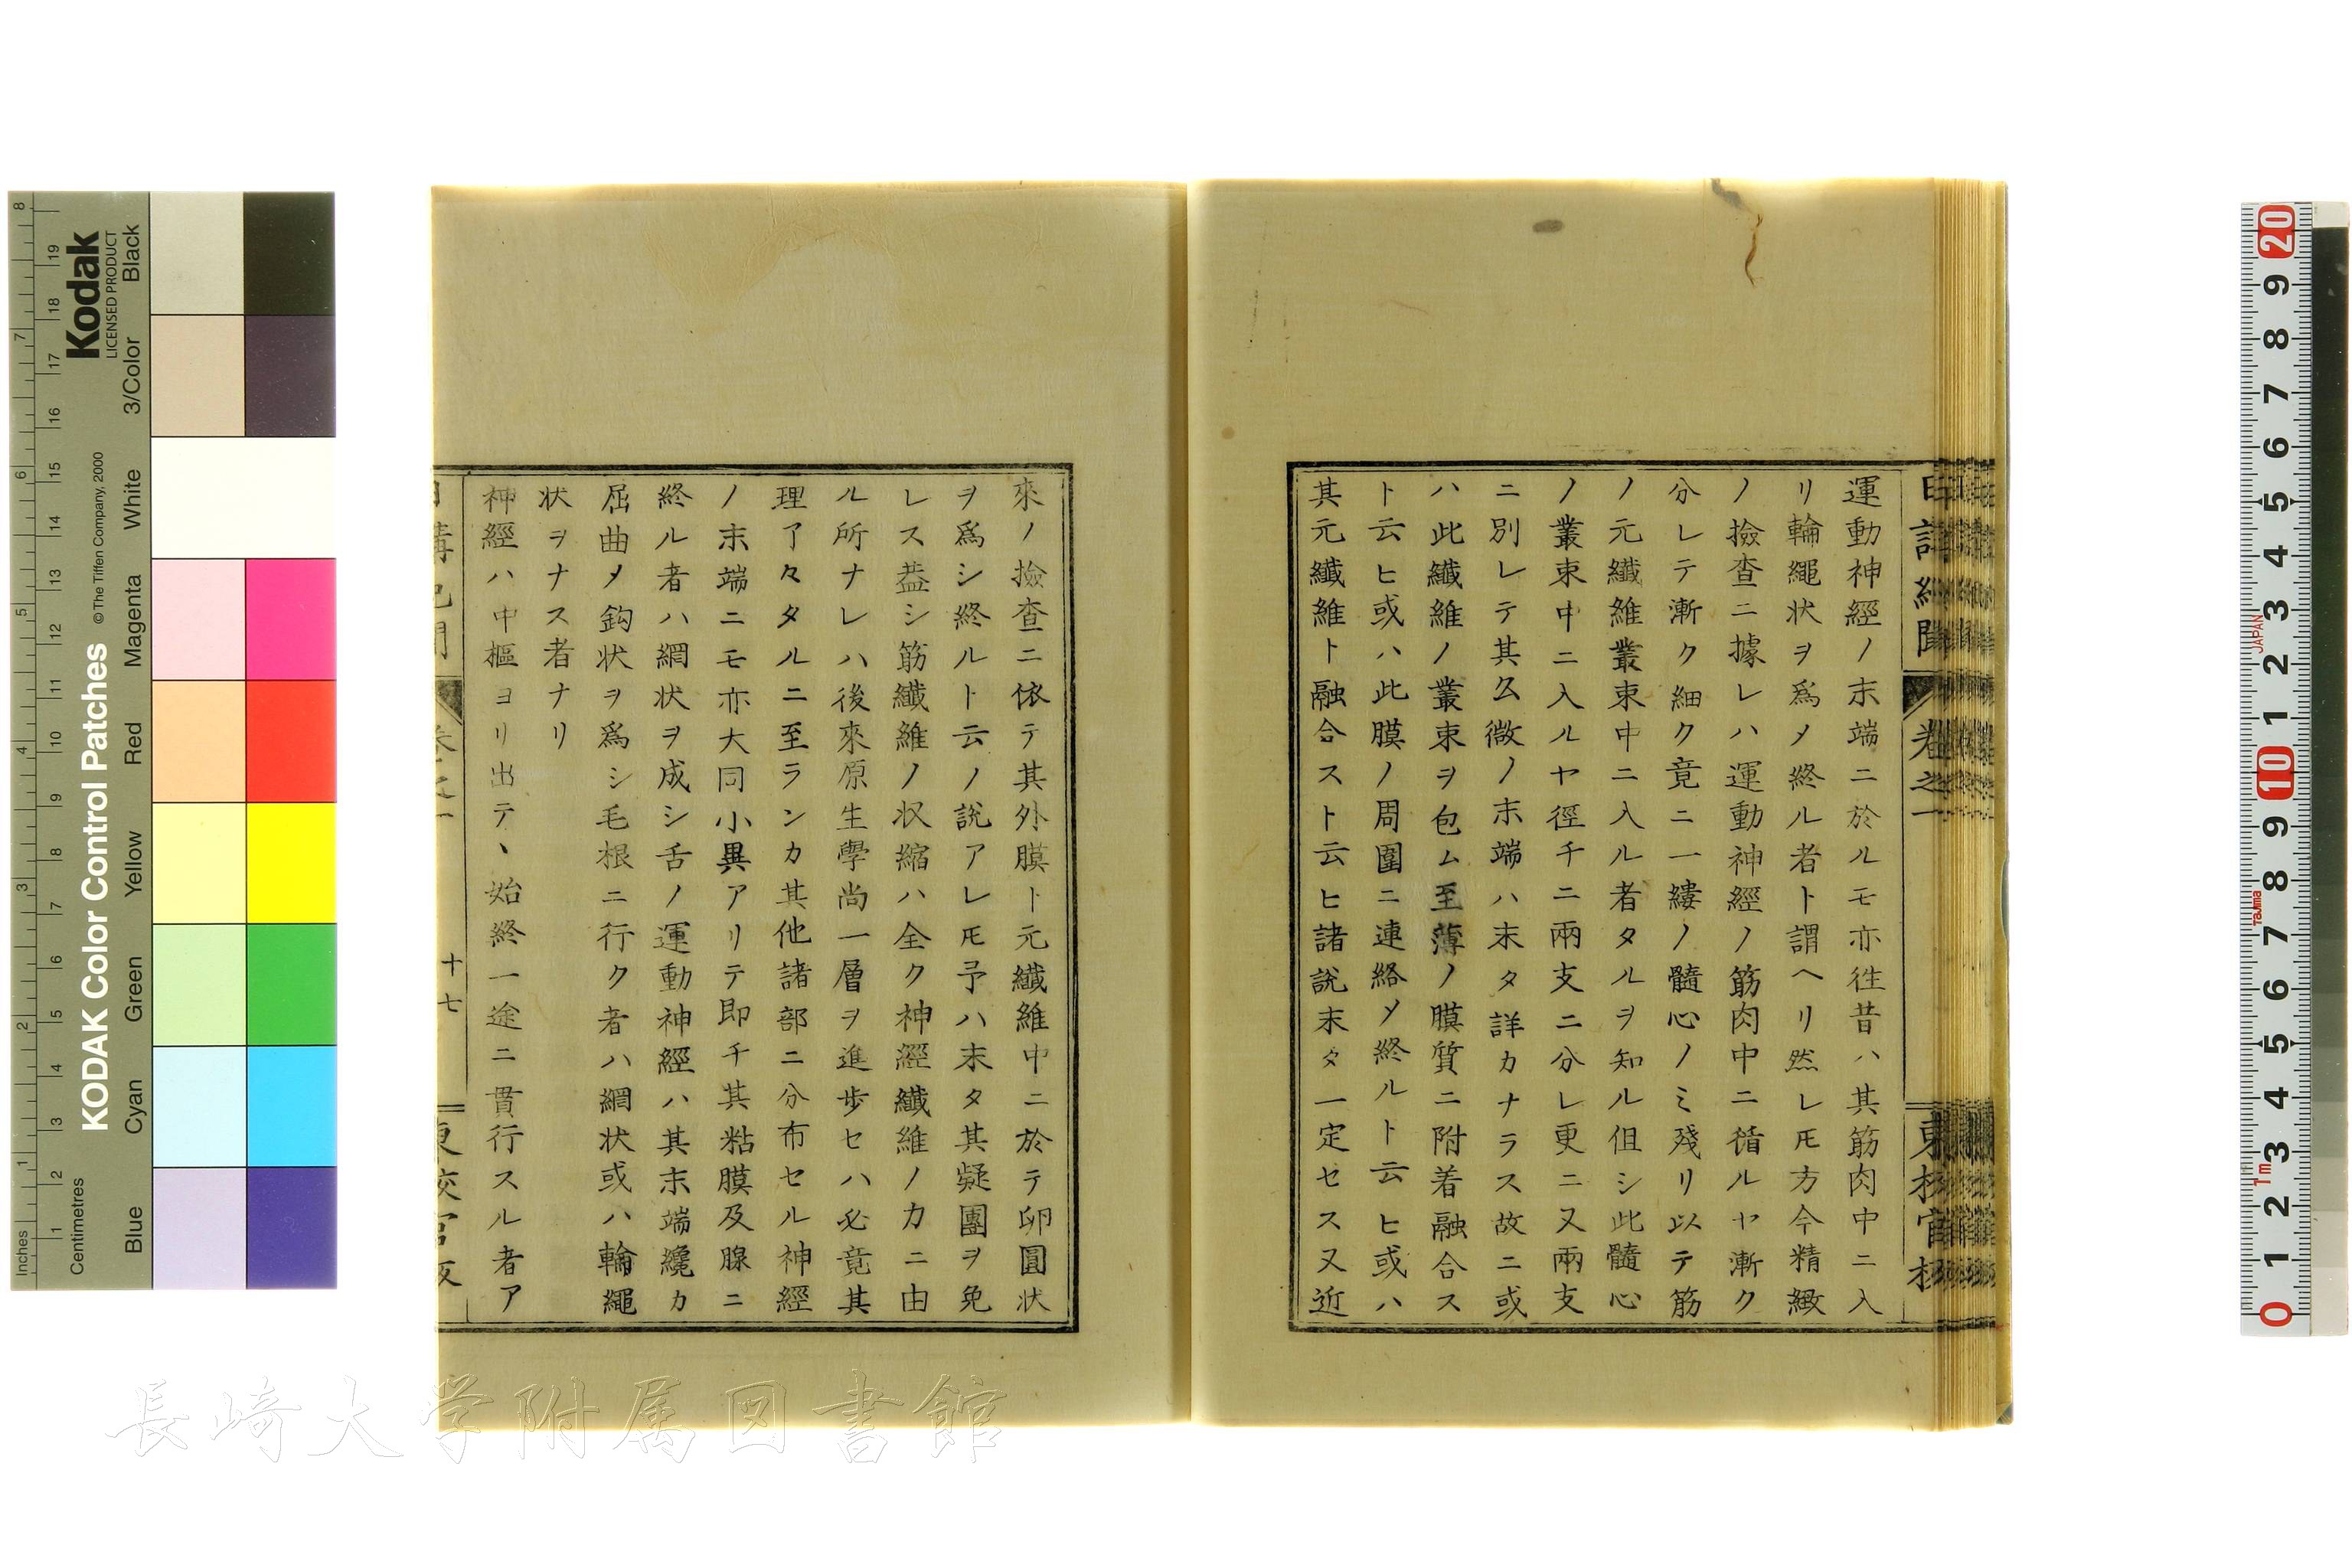 運動神經ノ末端ニ於ルモ亦徃昔ハ其筋肉中ニ入
リ輪繩状ヲ爲メ終ル者ト謂ヘリ然レ𪜈方今精緻
ノ撿查ニ據レハ運動神經ノ筋肉中ニ循ルヤ漸ク
分レテ漸ク細ク竟ニ一縷ノ髓心ノミ殘リ以テ筋
ノ元纖維叢束中ニ入ル者タルヲ知ル但シ此髓心
ノ叢束中ニ入ルヤ徑チニ兩支ニ分レ更ニ又兩支
ニ別レテ其幺微ノ末端ハ末タ詳カナラス故ニ或
ハ此纖維ノ叢束ヲ包ム至薄ノ膜質ニ附着融合ス
ト云ヒ或ハ此膜ノ周圍ニ連絡メ終ルト云ヒ或ハ
其元纖維ト融合スト云ヒ諸説末タ一定セス又近
來ノ撿查ニ依テ其外膜ト元纖維中ニ於テ卵圓状
ヲ爲シ終ルト云ノ說アレ𪜈予ハ末タ其疑團ヲ免
レス葢シ筋纖維ノ収縮ハ全ク神經纖維ノ力ニ由
ル所ナレハ後來原生學尚一層ヲ進步セハ必竟其
理了々タルニ至ランカ其他諸部ニ分布セル神經
ノ末端ニモ亦大同小異アリテ即チ其粘膜及腺ニ
終ル者ハ網状ヲ成シ舌ノ運動神經ハ其末端纔カ
屈曲メ鈎状ヲ爲シ毛根ニ行ク者ハ網状或ハ輪繩
状ヲナス者ナリ
神經ハ中樞ヨリ出テヽ始終一途ニ貫行スル者ア
十七
卷之一
東校官板
Kodak
LICENSED PRODUCT
KODAK Color Control Patches
© The Tiffen Company, 2000
Inches
Centimetres
Blue
Cyan
Green
Yellow
Red
Magenta
White
3/Color
Black
JAPAN
Tajima
1m
長崎大学附属図書館